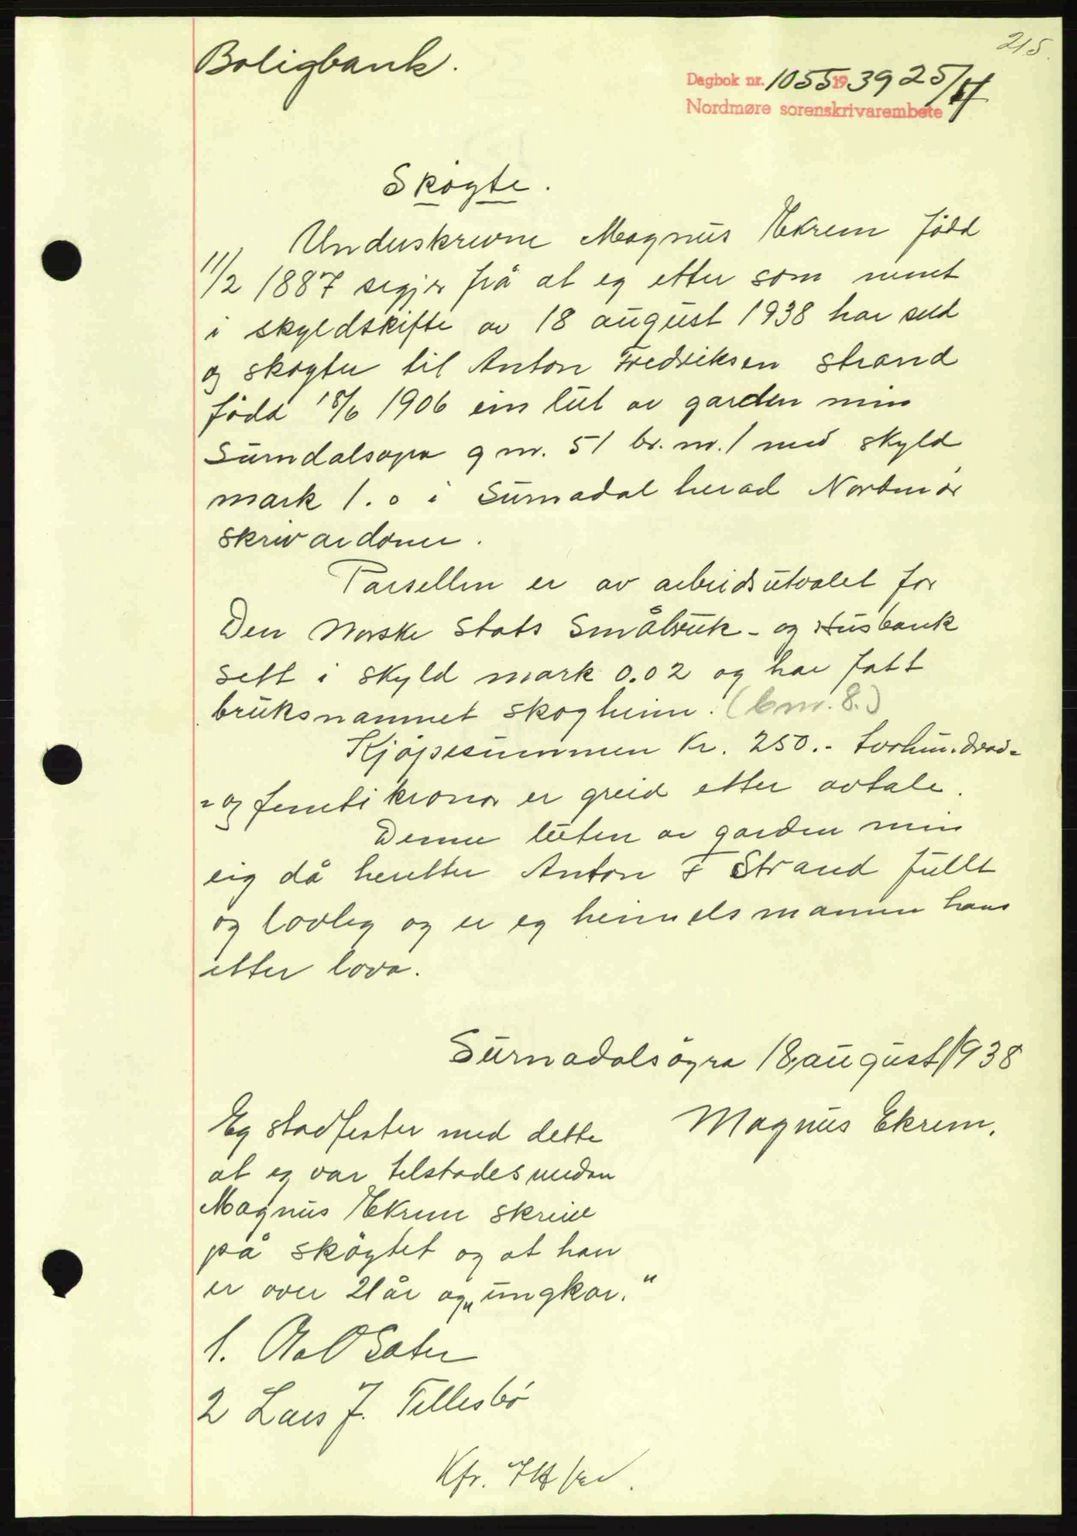 215.
Boligbank.
Dagbok nr. 1055 1939 25/4
Nordmøre sorenskrivarembete
Skøgte.
Underskrevne Magnus Ekrem född
11/2 1887 segjer frå at eg etter som nemt
i skyldskifte av 18 august 1938 har seld
og skøgter til Anton Fredriksen Strand
född 18/6 1906 ein lut av garden min
Surndalsøra g nr. 51 br. nr. 1 med skyld
mark 1. o i Surnadal herad Nordmør
skrivardöme.
Parsellen er av arbeidsutvalet for
Den Norske Stats Småbruk- og Husbank
sett i skyld mark 0.02 og har fått
bruksnamnet Skogheim. (bnr. 8.)
Kjöpesummen Kr. 250.- tvohundrad-
-og femti kronor er greid etter avtale.
Denne luten av garden min
eig då heretter Anton F Strand fullt
og lovleg og er eg heimelsmannen hans
etter lova.
Surnadalsöyra 18 august 1938
Magnus Ekrem.
Eg stadfester med dette
at eg var tilstades medan
Magnus Ekrem skreiv
på skøgtet og at han
er over 21 år og „ungkar.“
1. Ola O Sater
2 Lars J. Tellesbö
Kfr.